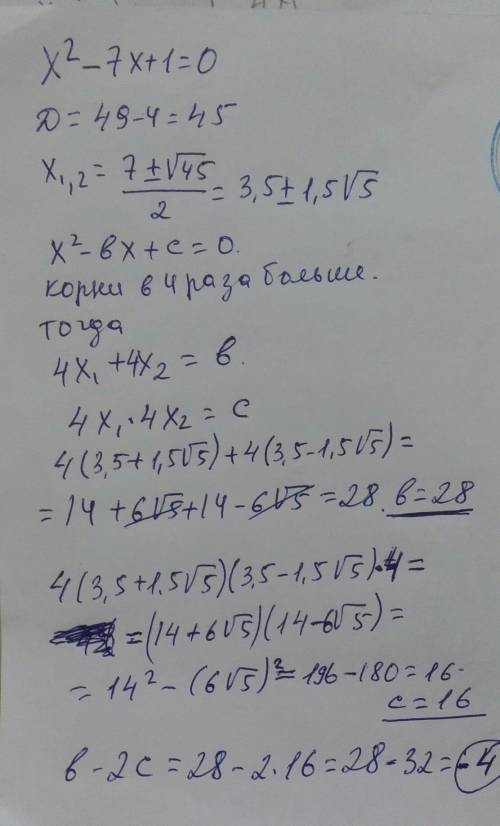 x² - 7x + 1 = 0
D = 49 - 4 = 45
x₁,₂ = (7 ± √45)/2 = 3,5 ± 1,5√5
x² - вx + c = 0.
корни в 4 раза больше.
тогда
4x₁ + 4x₂ = в.
4x₁ · 4x₂ = c
4(3,5 + 1,5√5) + 4(3,5 - 1,5√5) =
= 14 + 6√5 + 14 - 6√5 = 28. в = 28
4(3,5 + 1,5√5)(3,5 - 1,5√5)·4 =
= (14 + 6√5)(14 - 6√5) =
= 14² - (6√5)² = 196 - 180 = 16.
c = 16
в - 2c = 28 - 2·16 = 28 - 32 = -4